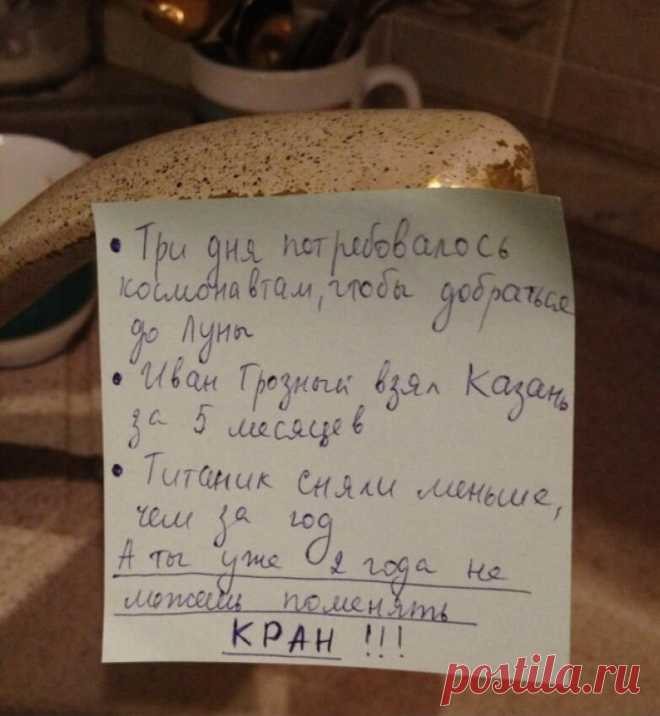 • Три дня потребовалось
космонавтам, чтобы добраться
до Луны
• Иван Грозный взял Казань
за 5 месяцев
• Титаник сняли меньше,
чем за год
А ты уже 2 года не
можешь поменять
КРАН !!!
postila.ru